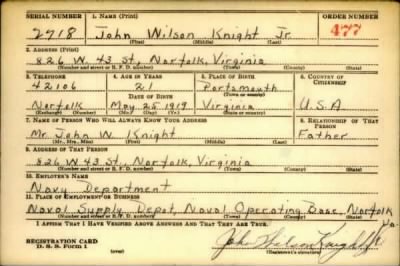 SERIAL NUMBER 1. NAME (Print) ORDER NUMBER
2718 John Wilson Knight Jr. 477
(First) (Middle) (Last)
2. ADDRESS (Print)
826 W. 43 St., Norfolk, Virginia
(Number and street or R. F. D. number) (Town) (County) (State)
3. TELEPHONE 4. AGE IN YEARS 5. PLACE OF BIRTH 6. COUNTRY OF CITIZENSHIP
42106 21 Portsmouth
DATE OF BIRTH (Town or county)
Norfolk May 25 1919 Virginia U.S.A
(Exchange) (Number) (Mo.) (Day) (Yr.) (State or country)
7. NAME OF PERSON WHO WILL ALWAYS KNOW YOUR ADDRESS 8. RELATIONSHIP OF THAT PERSON
Mr. John W. Knight Father
(Mr., Mrs., Miss) (First) (Middle) (Last)
9. ADDRESS OF THAT PERSON
826 W. 43 St., Norfolk, Virginia
(Number and street or R. F. D. number) (Town) (County) (State)
10. EMPLOYER'S NAME
Navy Department
11. PLACE OF EMPLOYMENT OR BUSINESS
Naval Supply Depot, Naval Operating Base, Norfolk Va.
(Number and street or R. F. D. number) (Town) (County) (State)
I AFFIRM THAT I HAVE VERIFIED ABOVE ANSWERS AND THAT THEY ARE TRUE.
REGISTRATION CARD
D. S. S. Form 1 John Wilson Knight Jr.